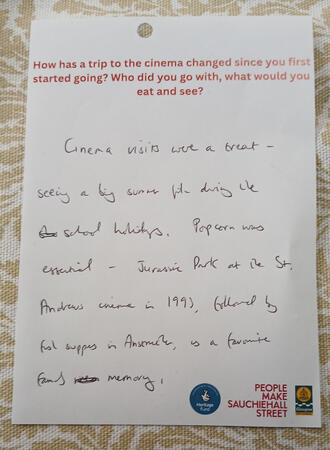 How has a trip to the cinema changed since you first
started going? Who did you go with, what would you
eat and see?
Cinema visits were a treat -
seeing a big summer film during the
school holidays. Popcorn was
essential - Jurassic Park at the St.
Andrews cinema in 1993, followed by
fish suppers in Anstruther, is a favourite
family memory.
Heritage
Fund
PEOPLE
MAKE
SAUCHIEHALL
STREET